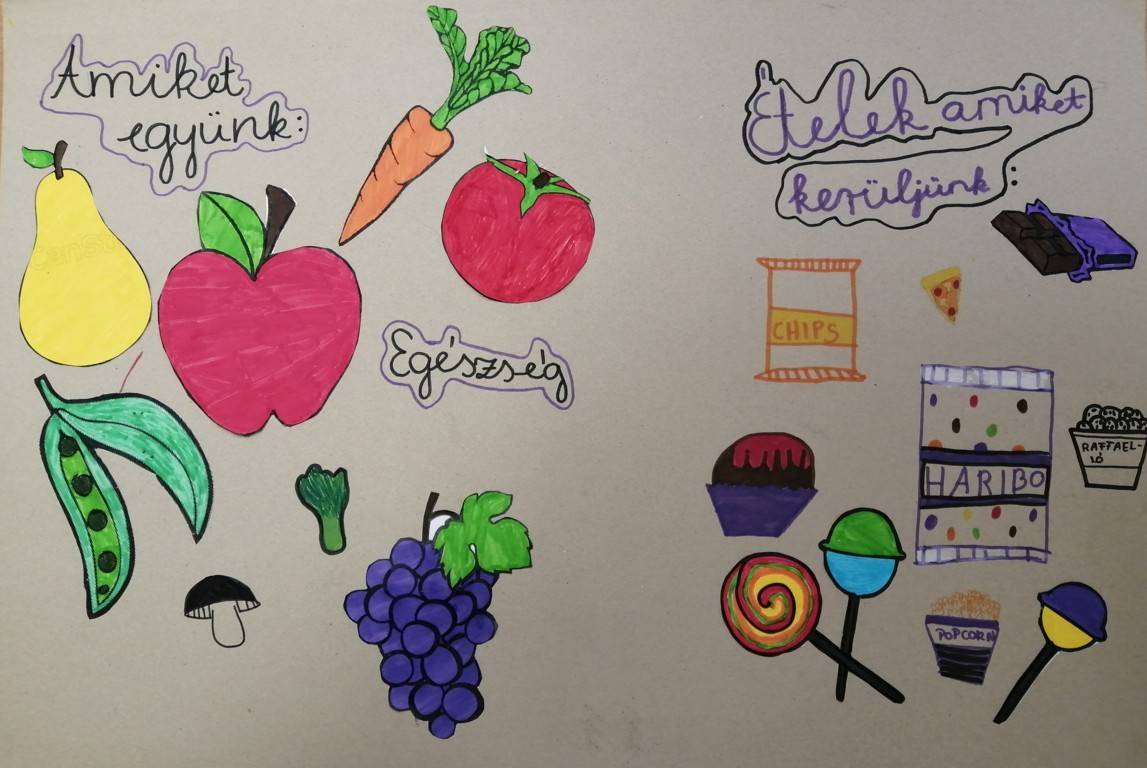 Amiket
együnk:
Ételek amiket
kerüljünk:
Egészség
CHIPS
HARIBO
RAFFAEL-
LÓ
POPCORN